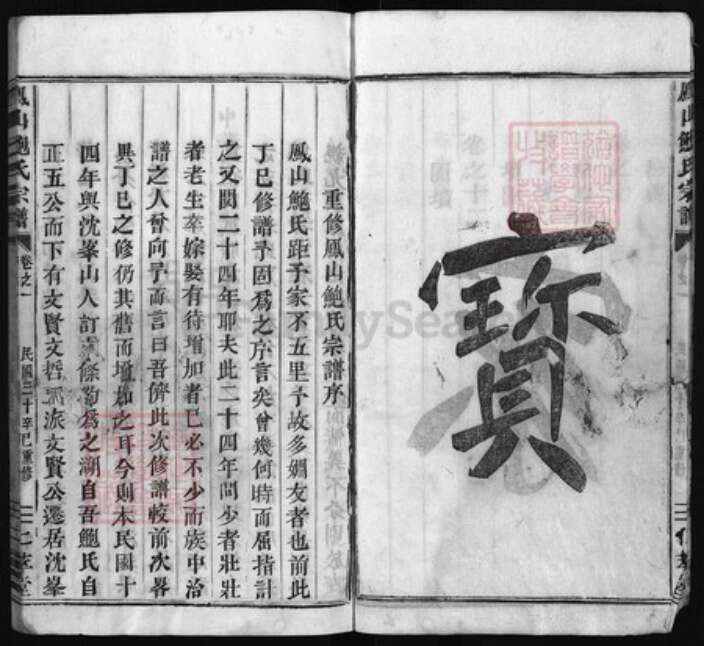 鳳山鮑氏宗譜
寶
重修鳳山鮑氏宗譜序
鳳山鮑氏距予家不五里予故多姻友者也前此
丁巳修譜予固為之序言矣曾幾何時而屈指計
之又閱二十四年耶夫此二十四年間少者壯壯
者老生卒嫁娶有待增加者已必不少而族中治
譜之人曾向予而言曰吾儕此次修譜較前次畧
異丁巳之修仍其舊而增加之耳今則本民國十
四年與沈峯山人訂
為之溯自吾鮑氏自
正五公而下有文賢文哲
派文賢公遷居沈峯
鳳山鮑氏宗譜
卷之一
民國三十辛巳重修
FamilySearch